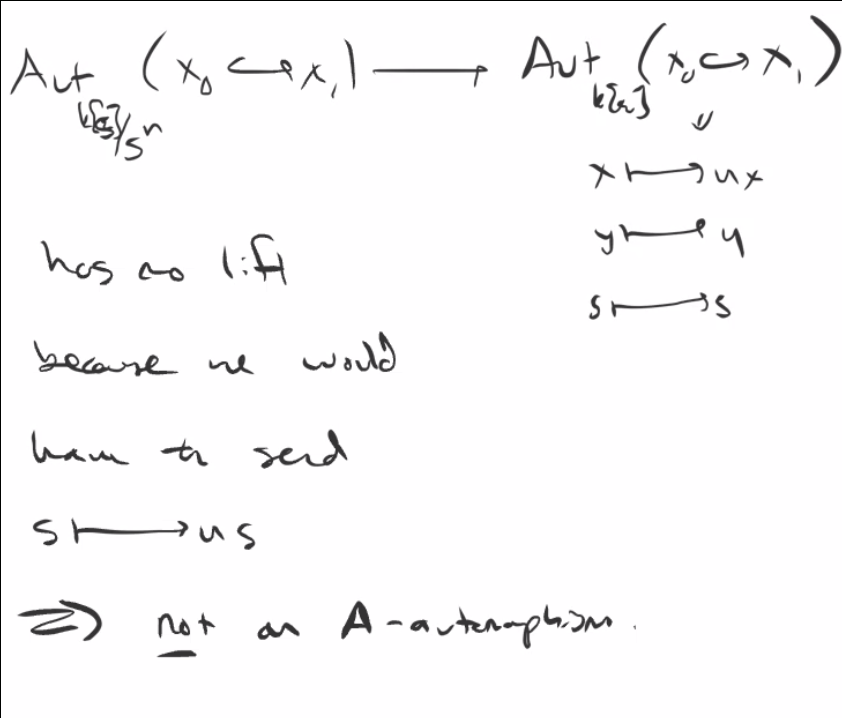 Aut_{k[s]/s^n} (x_0 ↪ x_1) ⟶ Aut (x_0 ↪ x_1)
x ↦ ux
y ↦ y
s ↦ s
has no lift
because we would
have to send
s ↦ us
⇒ not an A-automorphism.